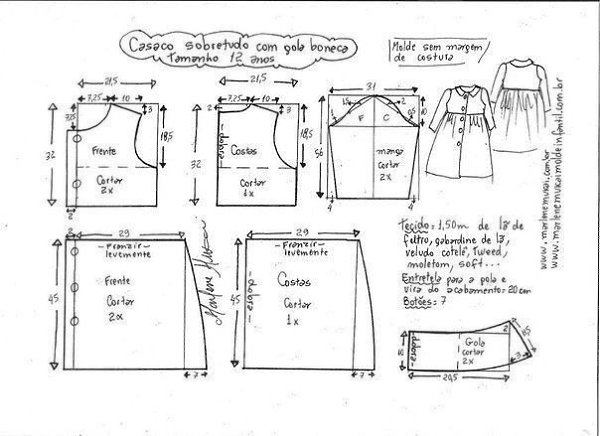 Casaco sobretudo com gola boneca
Tamanho 12 anos
Molde sem margem
de costura
21,5
7,25 10
3
7,25
32
18,5
Frente
Cortar
2x
2
21,5
7,25 10
2
3
32
18,5
dobra
Costas
Cortar
1x
31
1,5
2
10
56
F C
manga
Cortar
2x
4 4
www.marlenemukai.com.br
www.marlenemukaimoldeinfantil.com.br
Tecido: 1,50m de lã de
feltro, gabardine de lã,
veludo cotelê, Tweed,
moletom, soft...
Entretela para a gola e
vira do acabamento: 20cm
Botões: 7
2
29
Franzir
levemente
45
Frente
Cortar
2x
7
Marlene Mukai
29
Franzir
levemente
45
dobra
Costas
Cortar
1x
7
dobra
Gola
cortar
2x
2
8,5
3
20,5